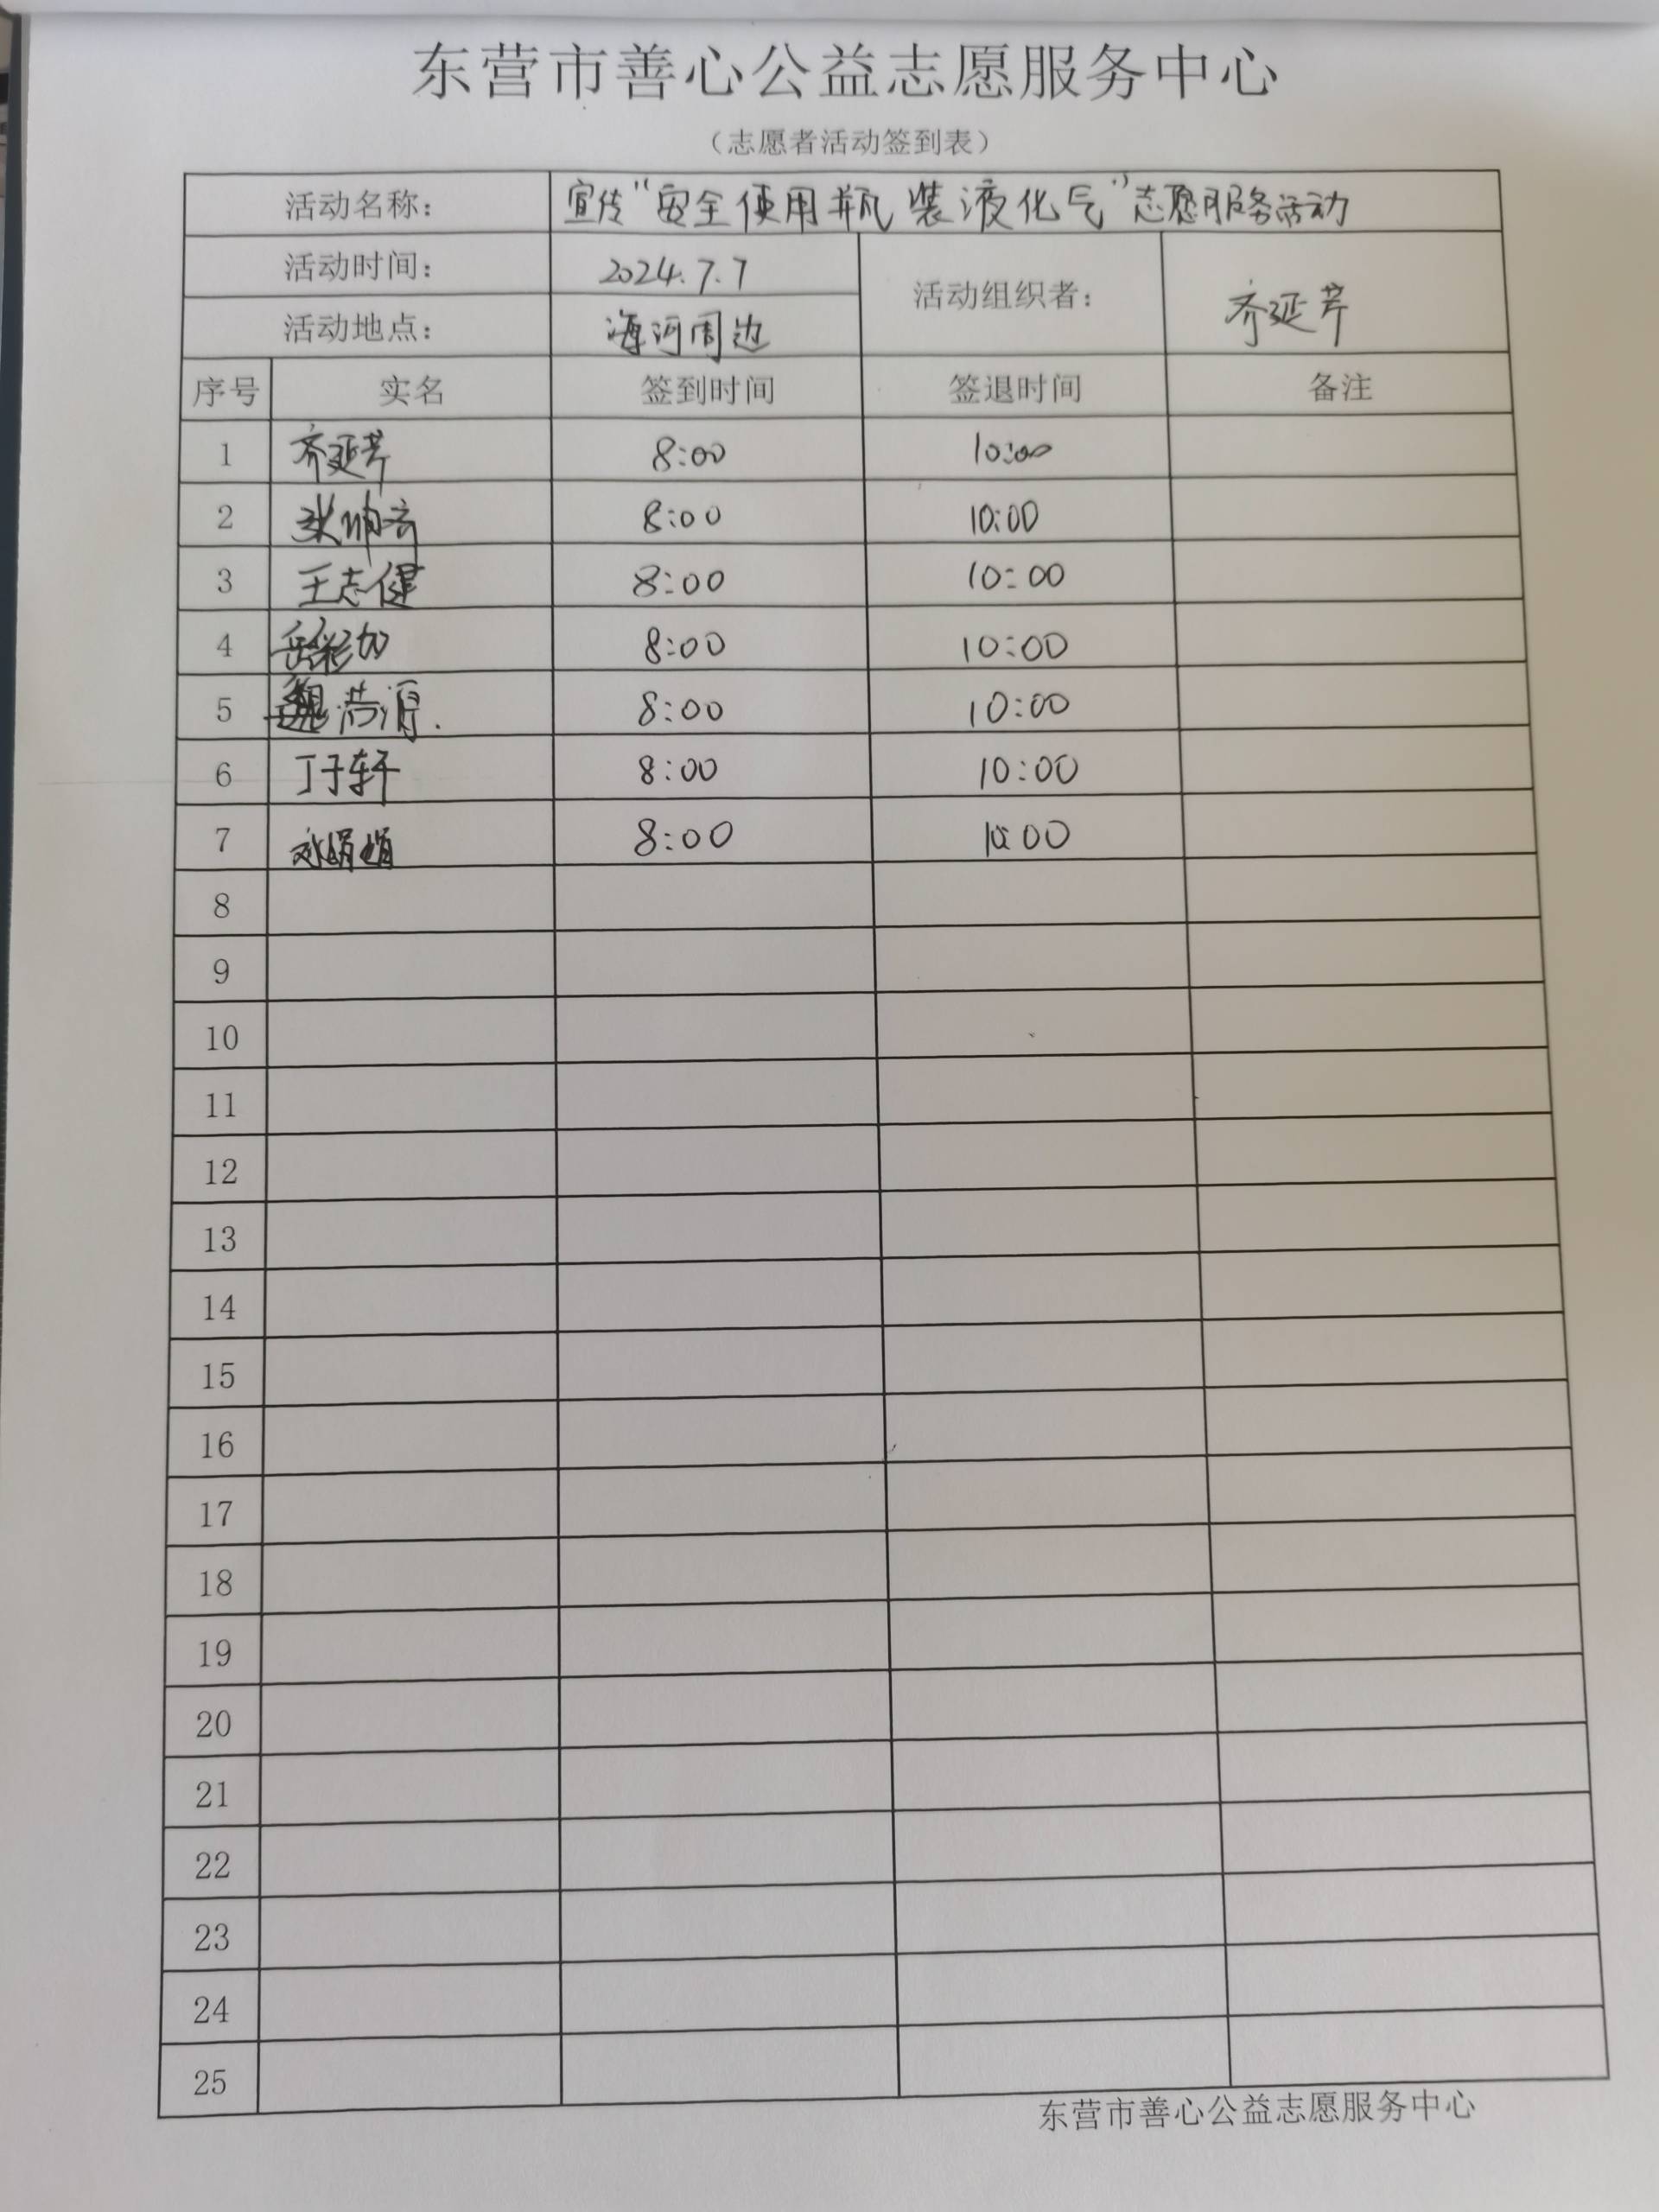 东营市善心公益志愿服务中心
（志愿者活动签到表）
活动名称： 宣传“安全使用瓶装液化气”志愿服务活动
活动时间： 2024.7.7 活动组织者： 齐延芹
活动地点： 海河周边
序号 实名 签到时间 签退时间 备注
1 齐延芹 8:00 10:00
2 8:00 10:00
3 王志健 8:00 10:00
4 8:00 10:00
5 8:00 10:00
6 丁子轩 8:00 10:00
7 刘娟娟 8:00 10:00
8
9
10
11
12
13
14
15
16
17
18
19
20
21
22
23
24
25
东营市善心公益志愿服务中心